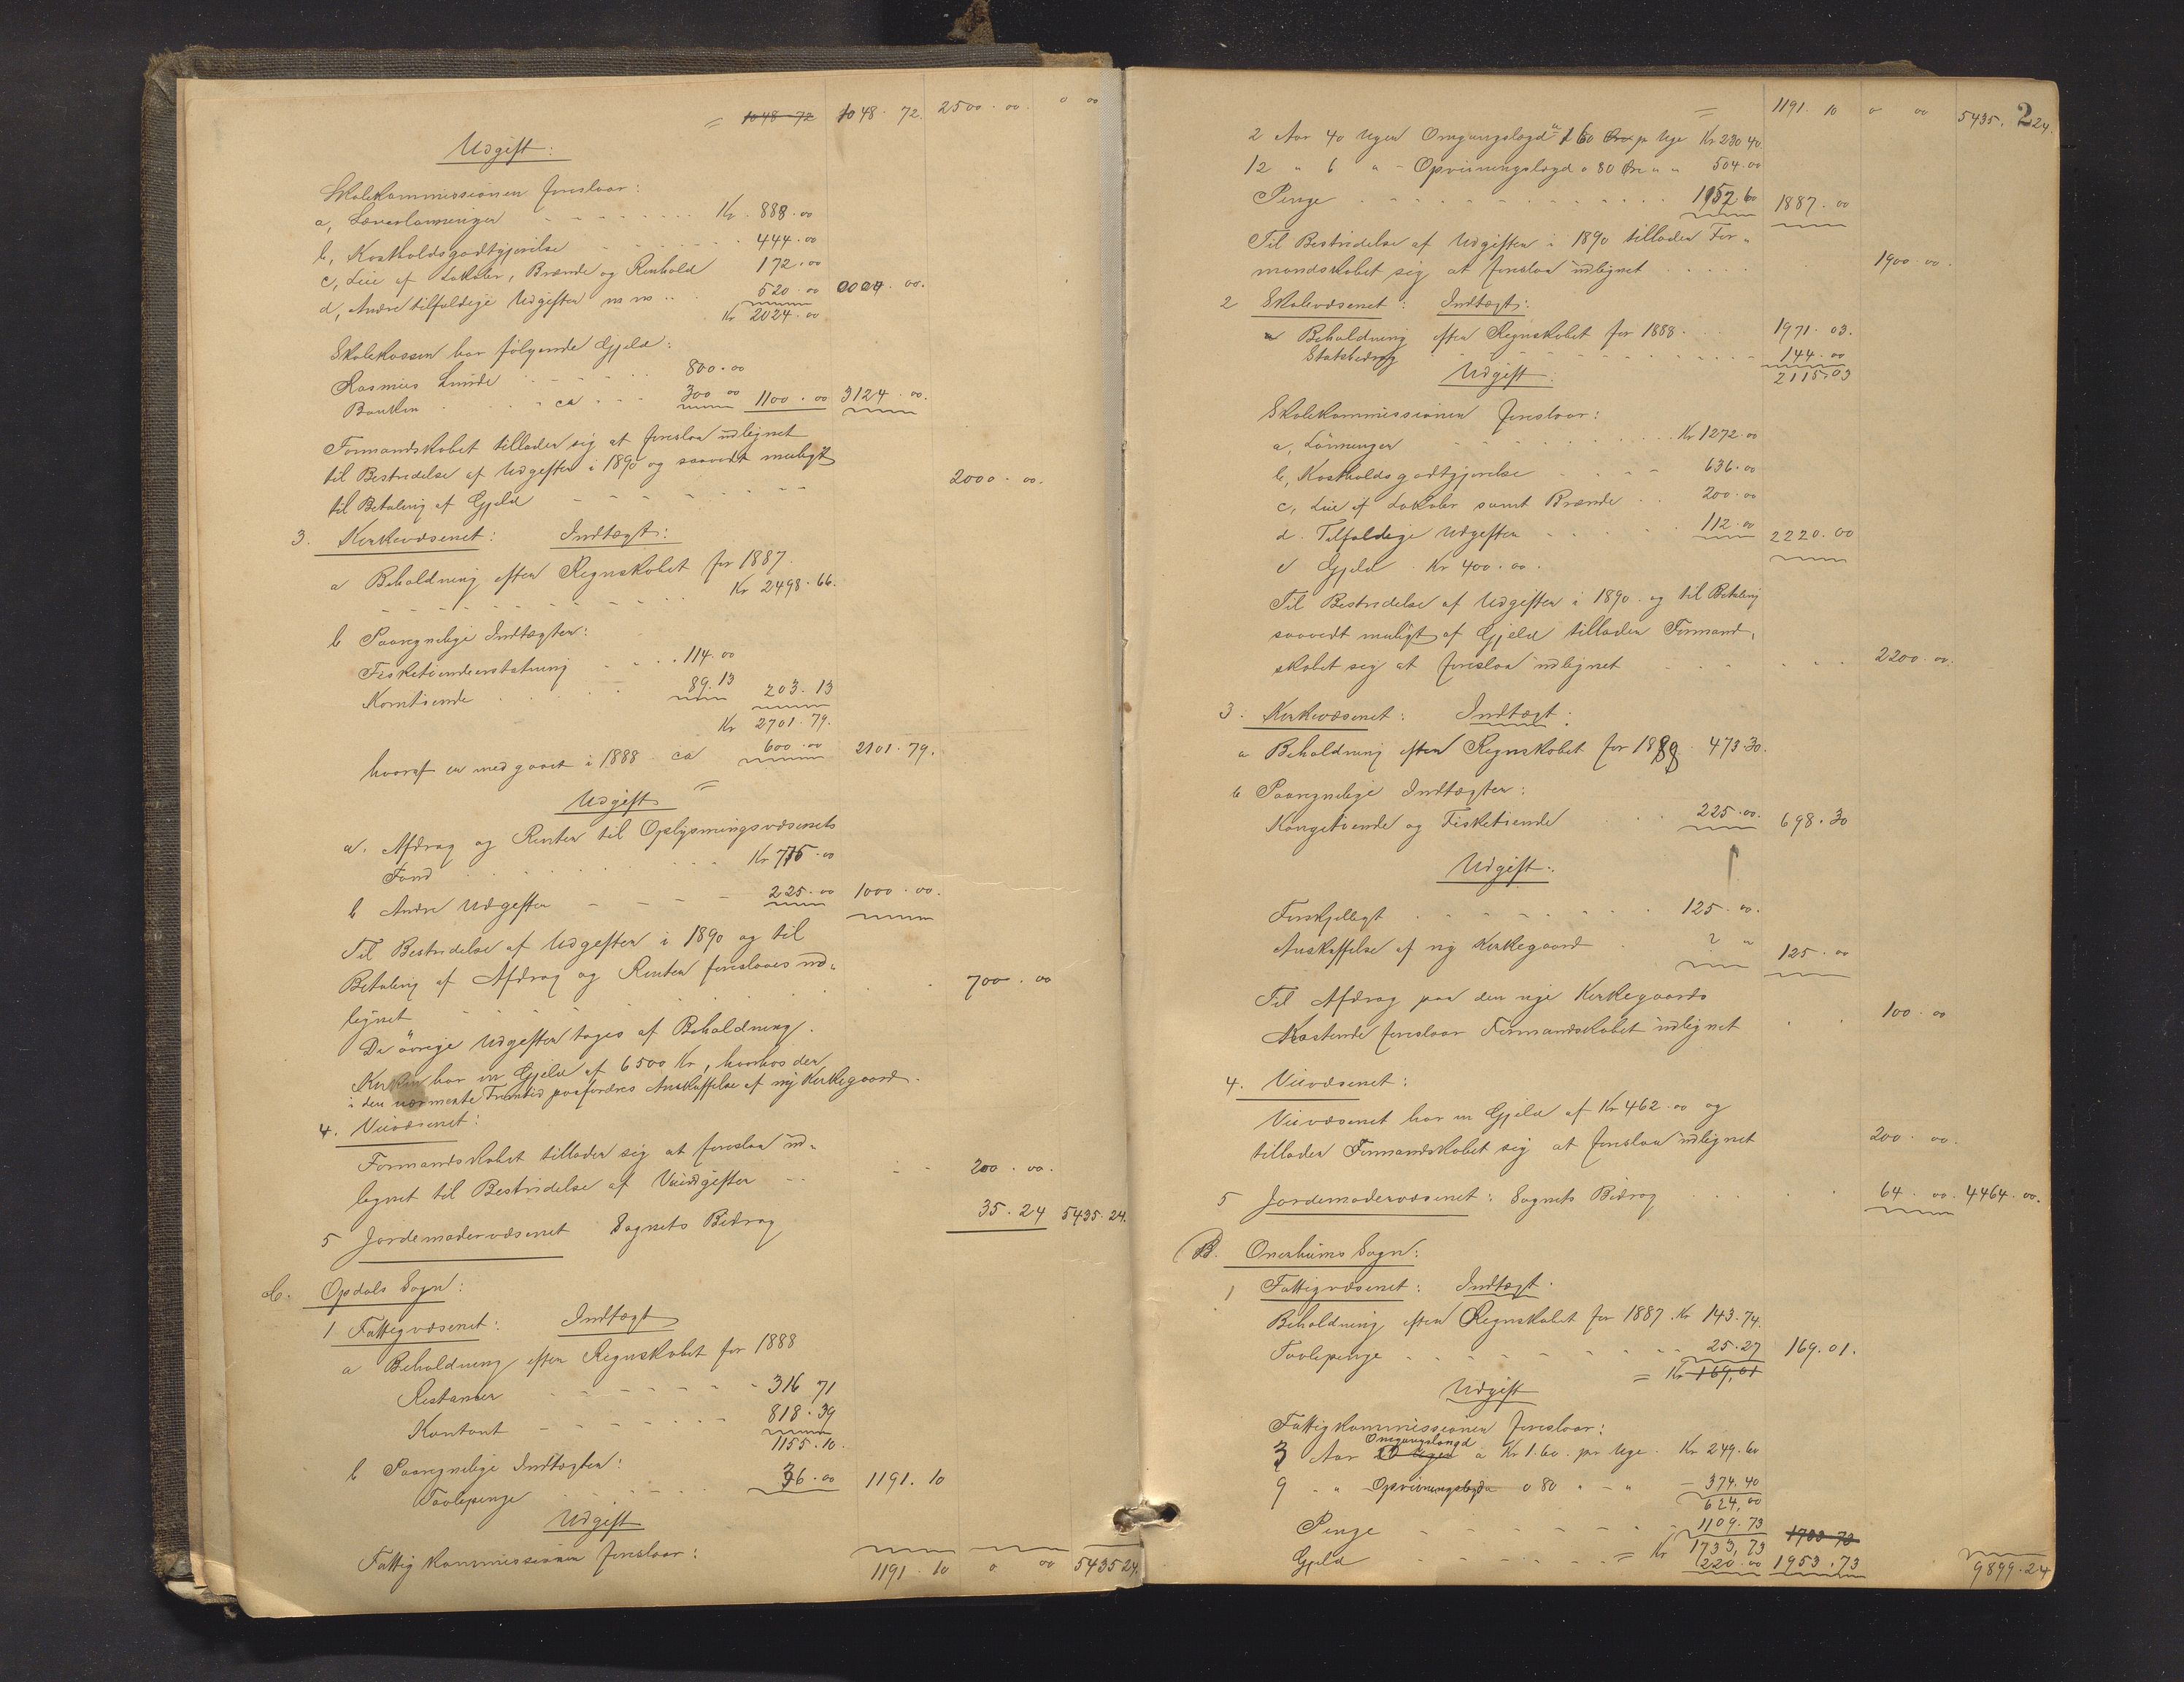 = 1048-72 1048.72. 2500.00. 0 00
Udgift:
Skolekommissionen foreslaar:
a, Lærerlønninger Kr. 888.00
b, Kostholdsgodtgjørelse 444.00
c, Leie af Lokaler, Brænde og Renhold 172.00
d, Andre tilfældige Udgifter m m 520.00
Kr 2024.00
Skolekassen har følgende Gjeld:
Rasmus Lunde 800.00
Banken ca 300 00 1100.00 3124.00.
Formandskabet tillader sig at foreslaa udlignet
til Bestridelse af Udgifter i 1890 og saavidt muligt
til Betaling af Gjeld 2000.00.
3. Kirkevæsenet: Indtægt:
a Beholdning efter Regnskabet for 1887.
Kr 2498.66.
b Paaregnelige Indtægter:
Fisketiendeerstatning 114.00
Korntiende 89.13 203.13
Kr 2701.79.
hvoraf er medgaaet i 1888 ca 600.00 2101.79.
=
Udgift
a. Afdrag og Renter til Oplysningsvæsenets
Fond Kr 775.00
b Andre Udgifter 225.00 1000.00.
Til Bestridelse af Udgifter i 1890 og til
Betaling af Afdrag og Renter foreslaaes ud-
lignet 700.00
De øvrige Udgifter tages af Beholdning.
Kirken har en Gjeld af 6500 Kr, hvorhos der
i den nærmeste Fremtid paafordres Anskaffelse af ny Kirkegaard.
4. Veivæsenet:
Formandskabet tillader sig at foreslaa ud-
lignet til Bestridelse af Veiudgifter 200.00.
5 Jordemodervæsenet Sognets Bidrag 35.24 5435.24.
Opdals Sogn:
1 Fattigvæsenet: Indtægt
a Beholdning efter Regnskabet for 1888
Restancer 316 71
Kontant 818.39
1155.10.
b Paaregnelige Indtægter:
Tavlepenge 36.00 1191.10
Udgift
Fattigkommissionen foreslaar:
1191.10 0 00 5435 24.
2
= 1191.10 0 00 5435.24.
2 Aar 40 Uger Omgangslægd a 1 60 Øre pr Uge Kr 230 40
12 " 6 " - Opviisningslægd a 80 Øre " " 504.00
Penge 1152 60 1887.00
Til Bestridelse af Udgifter i 1890 tillader For-
mandskabet sig at foreslaa udlignet 1900.00.
2 Skolevæsenet: Indtægt:
a Beholdning efter Regnskabet for 1888. 1971.03.
Statsbidrag 144.00
Udgift. 2115.03
Skolekommissionen foreslaar:
a, Lønninger Kr 1272.00
b, Kostholdsgodtgjørelse 636.00
c, Leie af Lokaler samt Brænde 200.00
d. Tilfældige Udgifter 112.00 2220.00
e Gjeld Kr 400.00.
Til Bestridelse af Udgifter i 1890 og til Betaling
saavidt muligt af Gjeld tillader Formand-
skabet sig at foreslaa udlignet 2200.00.
3. Kirkevæsenet: Indtægt:
a Beholdning efter Regnskabet for 1888 473.30.
b Paaregnelige Indtægter:
Kongetiende og Fisketiende 225.00. 698.30
Udgift.
Forskjelligt 125.00.
Anskaffelse af ny Kirkegaard ? " 125.00
Til Afdrag paa den nye Kirkegaards
Kostende foreslaar Formandskabet udlignet 100.00
4. Veivæsenet:
Veivæsenet har en Gjeld af Kr 462.00 og
tillader Formandskabet sig at foreslaa udlignet 200.00.
5 Jordemodervæsenet: Sognets Bidrag 64.00. 4464.00.
B. Onarheims Sogn:
1 Fattigvæsenet: Indtægt.
Beholdning efter Regnskabet for 1887. Kr 143.74.
Tavlepenge 25.27 169.01.
= Kr 169,01
Udgift
Fattigkommissionen foreslaar:
Omgangslægd
3 Aar 10 Uger a Kr 1.60. pr Uge. Kr 249.60
9 " " Opviisningslægd a 80 " - " 374.40
624,00
Penge 1109.73
= Kr 1733,73 1700 73
Gjeld 220.00 1953.73 9899.24